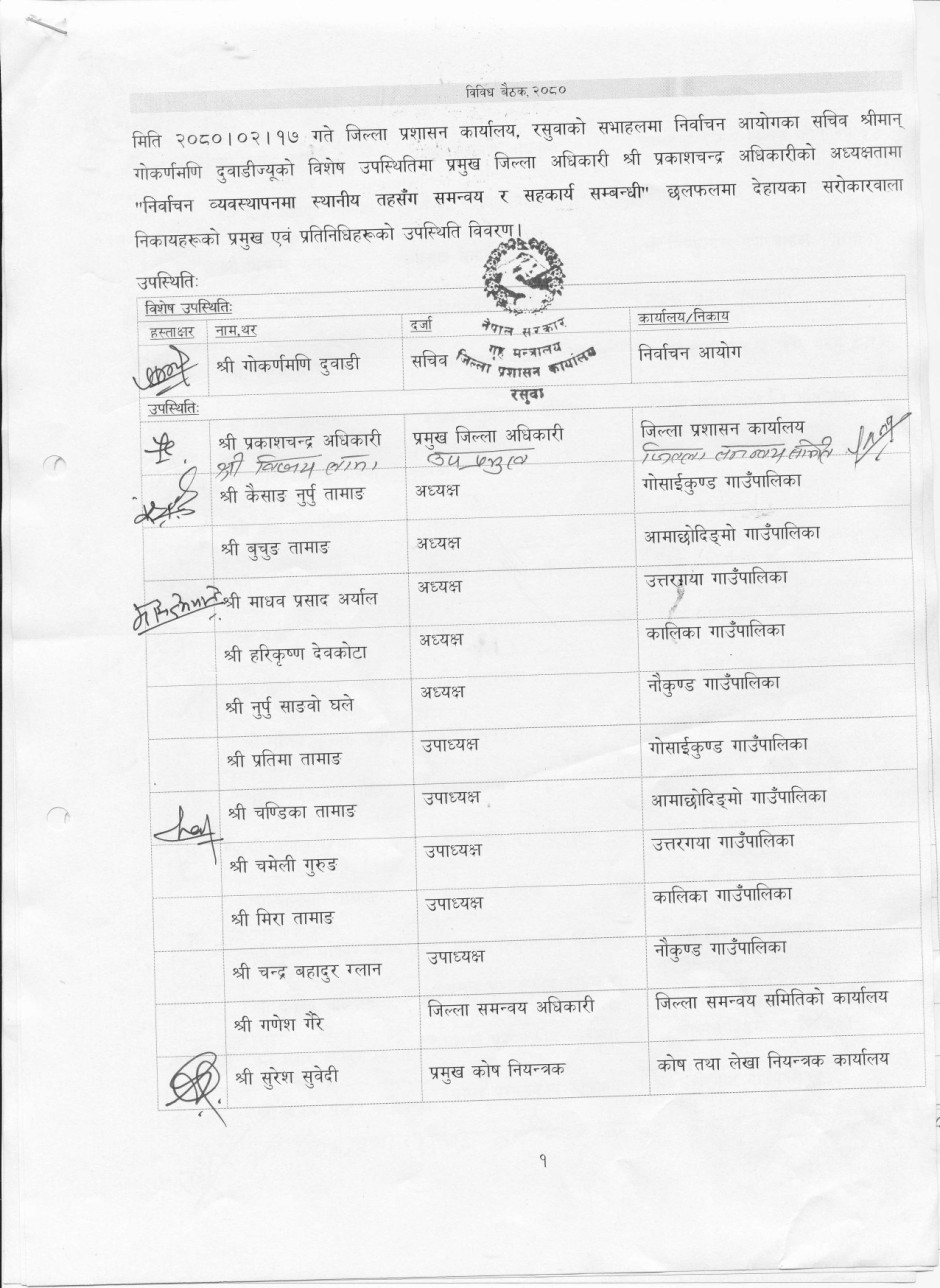 विविध बैठक, २०८०
मिति २०८०।०२।१७ गते जिल्ला प्रशासन कार्यालय, रसुवाको सभाहलमा निर्वाचन आयोगका सचिव श्रीमान्
गोकर्णमणि दुवाडीज्यूको विशेष उपस्थितिमा प्रमुख जिल्ला अधिकारी श्री प्रकाशचन्द्र अधिकारीको अध्यक्षतामा
"निर्वाचन व्यवस्थापनमा स्थानीय तहसँग समन्वय र सहकार्य सम्बन्धी" छलफलमा देहायका सरोकारवाला
निकायहरूको प्रमुख एवं प्रतिनिधिहरूको उपस्थिति विवरण।
उपस्थितिः
विशेष उपस्थितिः
हस्ताक्षर नाम,थर दर्जा कार्यालय/निकाय
नेपाल सरकार
गृह मन्त्रालय
जिल्ला प्रशासन कार्यालय
रसुवा
श्री गोकर्णमणि दुवाडी सचिव निर्वाचन आयोग
उपस्थितिः
श्री प्रकाशचन्द्र अधिकारी प्रमुख जिल्ला अधिकारी जिल्ला प्रशासन कार्यालय
श्री उप प्रमुख जिल्ला समन्वय समिति
श्री कैसाङ नुर्पु तामाङ अध्यक्ष गोसाईकुण्ड गाउँपालिका
श्री बुचुङ तामाङ अध्यक्ष आमाछोदिङ्मो गाउँपालिका
श्री माधव प्रसाद अर्याल अध्यक्ष उत्तरगया गाउँपालिका
श्री हरिकृष्ण देवकोटा अध्यक्ष कालिका गाउँपालिका
श्री नुर्पु साङवो घले अध्यक्ष नौकुण्ड गाउँपालिका
श्री प्रतिमा तामाङ उपाध्यक्ष गोसाईकुण्ड गाउँपालिका
श्री चण्डिका तामाङ उपाध्यक्ष आमाछोदिङ्मो गाउँपालिका
श्री चमेली गुरुङ उपाध्यक्ष उत्तरगया गाउँपालिका
श्री मिरा तामाङ उपाध्यक्ष कालिका गाउँपालिका
श्री चन्द्र बहादुर ग्लान उपाध्यक्ष नौकुण्ड गाउँपालिका
श्री गणेश गैरे जिल्ला समन्वय अधिकारी जिल्ला समन्वय समितिको कार्यालय
श्री सुरेश सुवेदी प्रमुख कोष नियन्त्रक कोष तथा लेखा नियन्त्रक कार्यालय
१